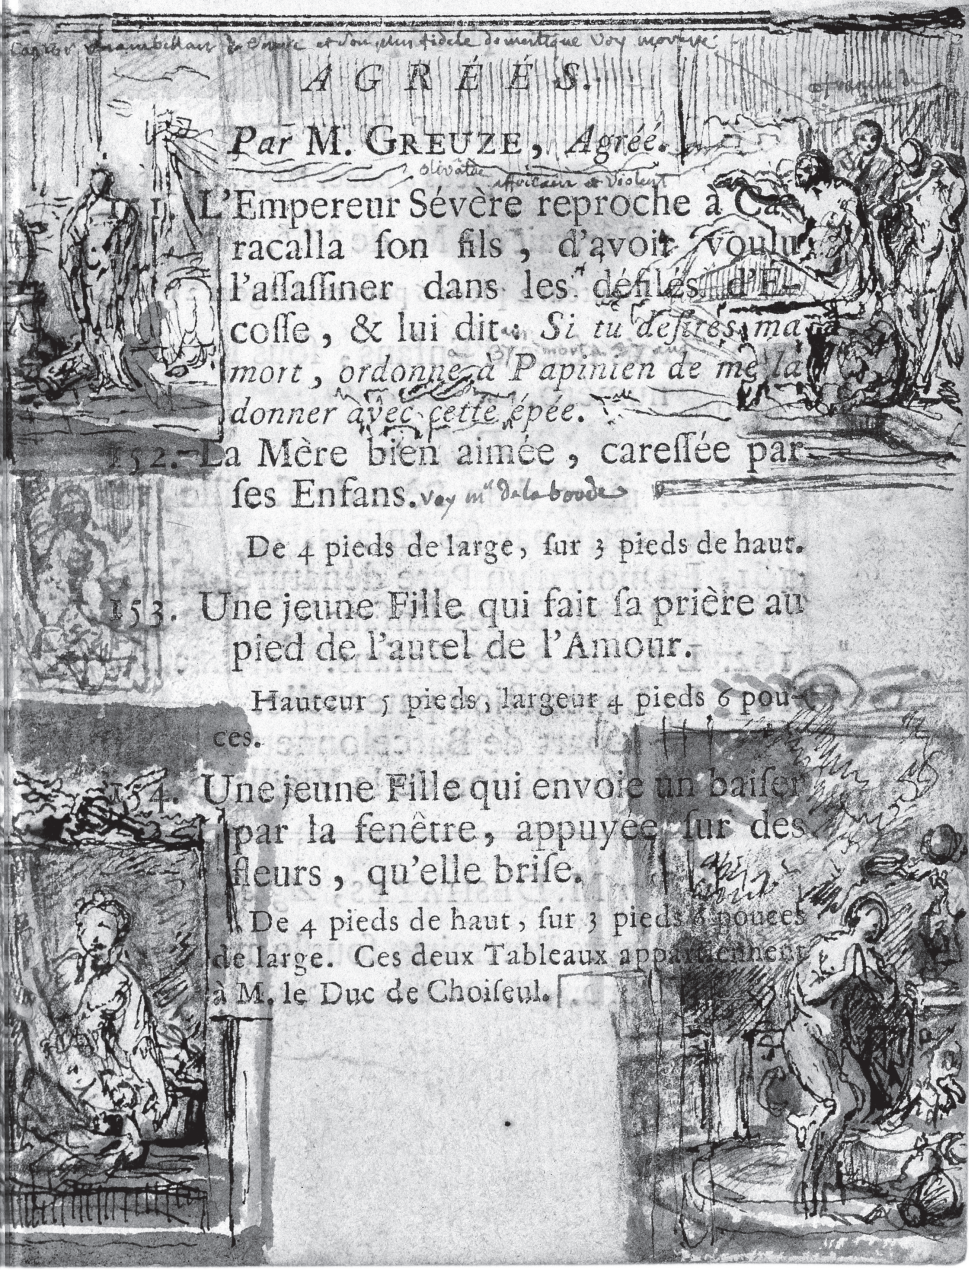 AGRÉÉS.
Par M. GREUZE, Agréé.
olivâtre
africain et violent
151. L'Empereur Sévère reproche à Ca-
racalla ſon fils, d'avoir voulu
l'aſſaſſiner dans les défilés d'E-
coſſe, & lui dit: Si tu deſires ma
mort, ordonne à Papinien de me la
donner avec cette épée.
152. La Mère bien aimée, careſſée par
ſes Enfans. Voy mr de la borde
De 4 pieds de large, ſur 3 pieds de haut.
153. Une jeune Fille qui fait ſa prière au
pied de l'autel de l'Amour.
Hauteur 5 pieds, largeur 4 pieds 6 pou-
ces.
154. Une jeune Fille qui envoie un baiſer
par la fenêtre, appuyée ſur des
fleurs, qu'elle briſe.
De 4 pieds de haut, ſur 3 pieds 6 pouces
de large. Ces deux Tableaux appartiennent
à M. le Duc de Choiſeul.